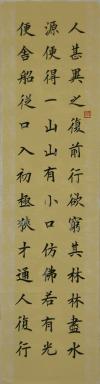 人甚異之復前行欲窮其林林盡水
源便得一山山有小口仿佛若有光
便舍船從口入初極狹才通人復行